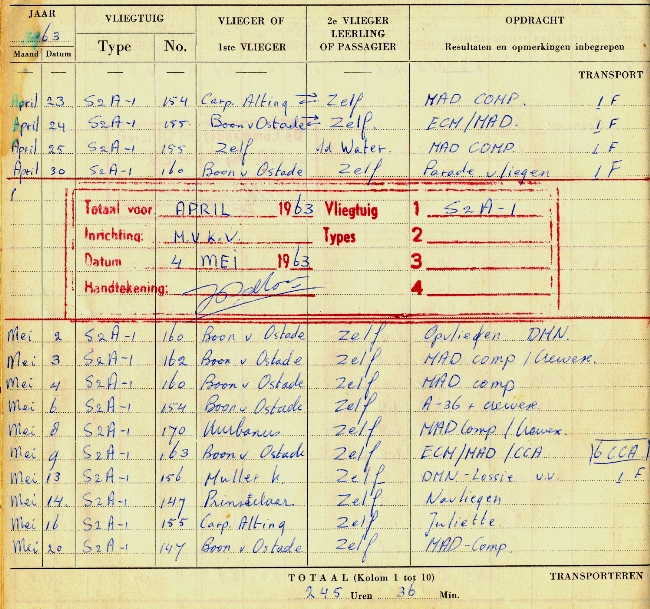 JAAR 1963 VLIEGTUIG VLIEGER OF 1ste VLIEGER 2e VLIEGER LEERLING OF PASSAGIER OPDRACHT
Maand Datum Type No. Resultaten en opmerkingen inbegrepen
TRANSPORT
April 23 S2A-1 154 Carp. Alting ⇄ Zelf MAD COMP. 1 F
April 24 S2A-1 155 Boon v Ostade ⇄ Zelf ECM/MAD. 1 F
April 25 S2A-1 155 Zelf v/d Water. MAD COMP. 1 F
April 30 S2A-1 160 Boon v Ostade Zelf Parade vliegen 1 F
Totaal voor APRIL 1963 Vliegtuig 1 S2A-1
Inrichting: M.V.K.V. Types 2
Datum 4 MEI 1963 3
Handtekening: 4
Mei 2 S2A-1 160 Boon v Ostade Zelf Opvliegen DMN.
Mei 3 S2A-1 162 Boon v Ostade Zelf MAD comp / Crewex.
Mei 4 S2A-1 160 Boon v Ostade Zelf MAD comp
Mei 6 S2A-1 154 Boon v Ostade Zelf A-36 + crewex.
Mei 8 S2A-1 170 Wurbanus Zelf MAD Comp / Crewex.
Mei 9 S2A-1 163 Boon v Ostade Zelf ECM/MAD/CCA 6 CCA
Mei 13 S2A-1 156 Muller K. Zelf DMN.-Lossie v.v. 1 F
Mei 14. S2A-1 147 Zelf Navliegen
Mei 16 S2A-1 155 Carp. Alting Zelf Juliette
Mei 20 S2A-1 147 Boon v Ostade Zelf MAD-Comp.
TOTAAL (Kolom 1 tot 10) TRANSPORTEREN
245 Uren 36 Min.